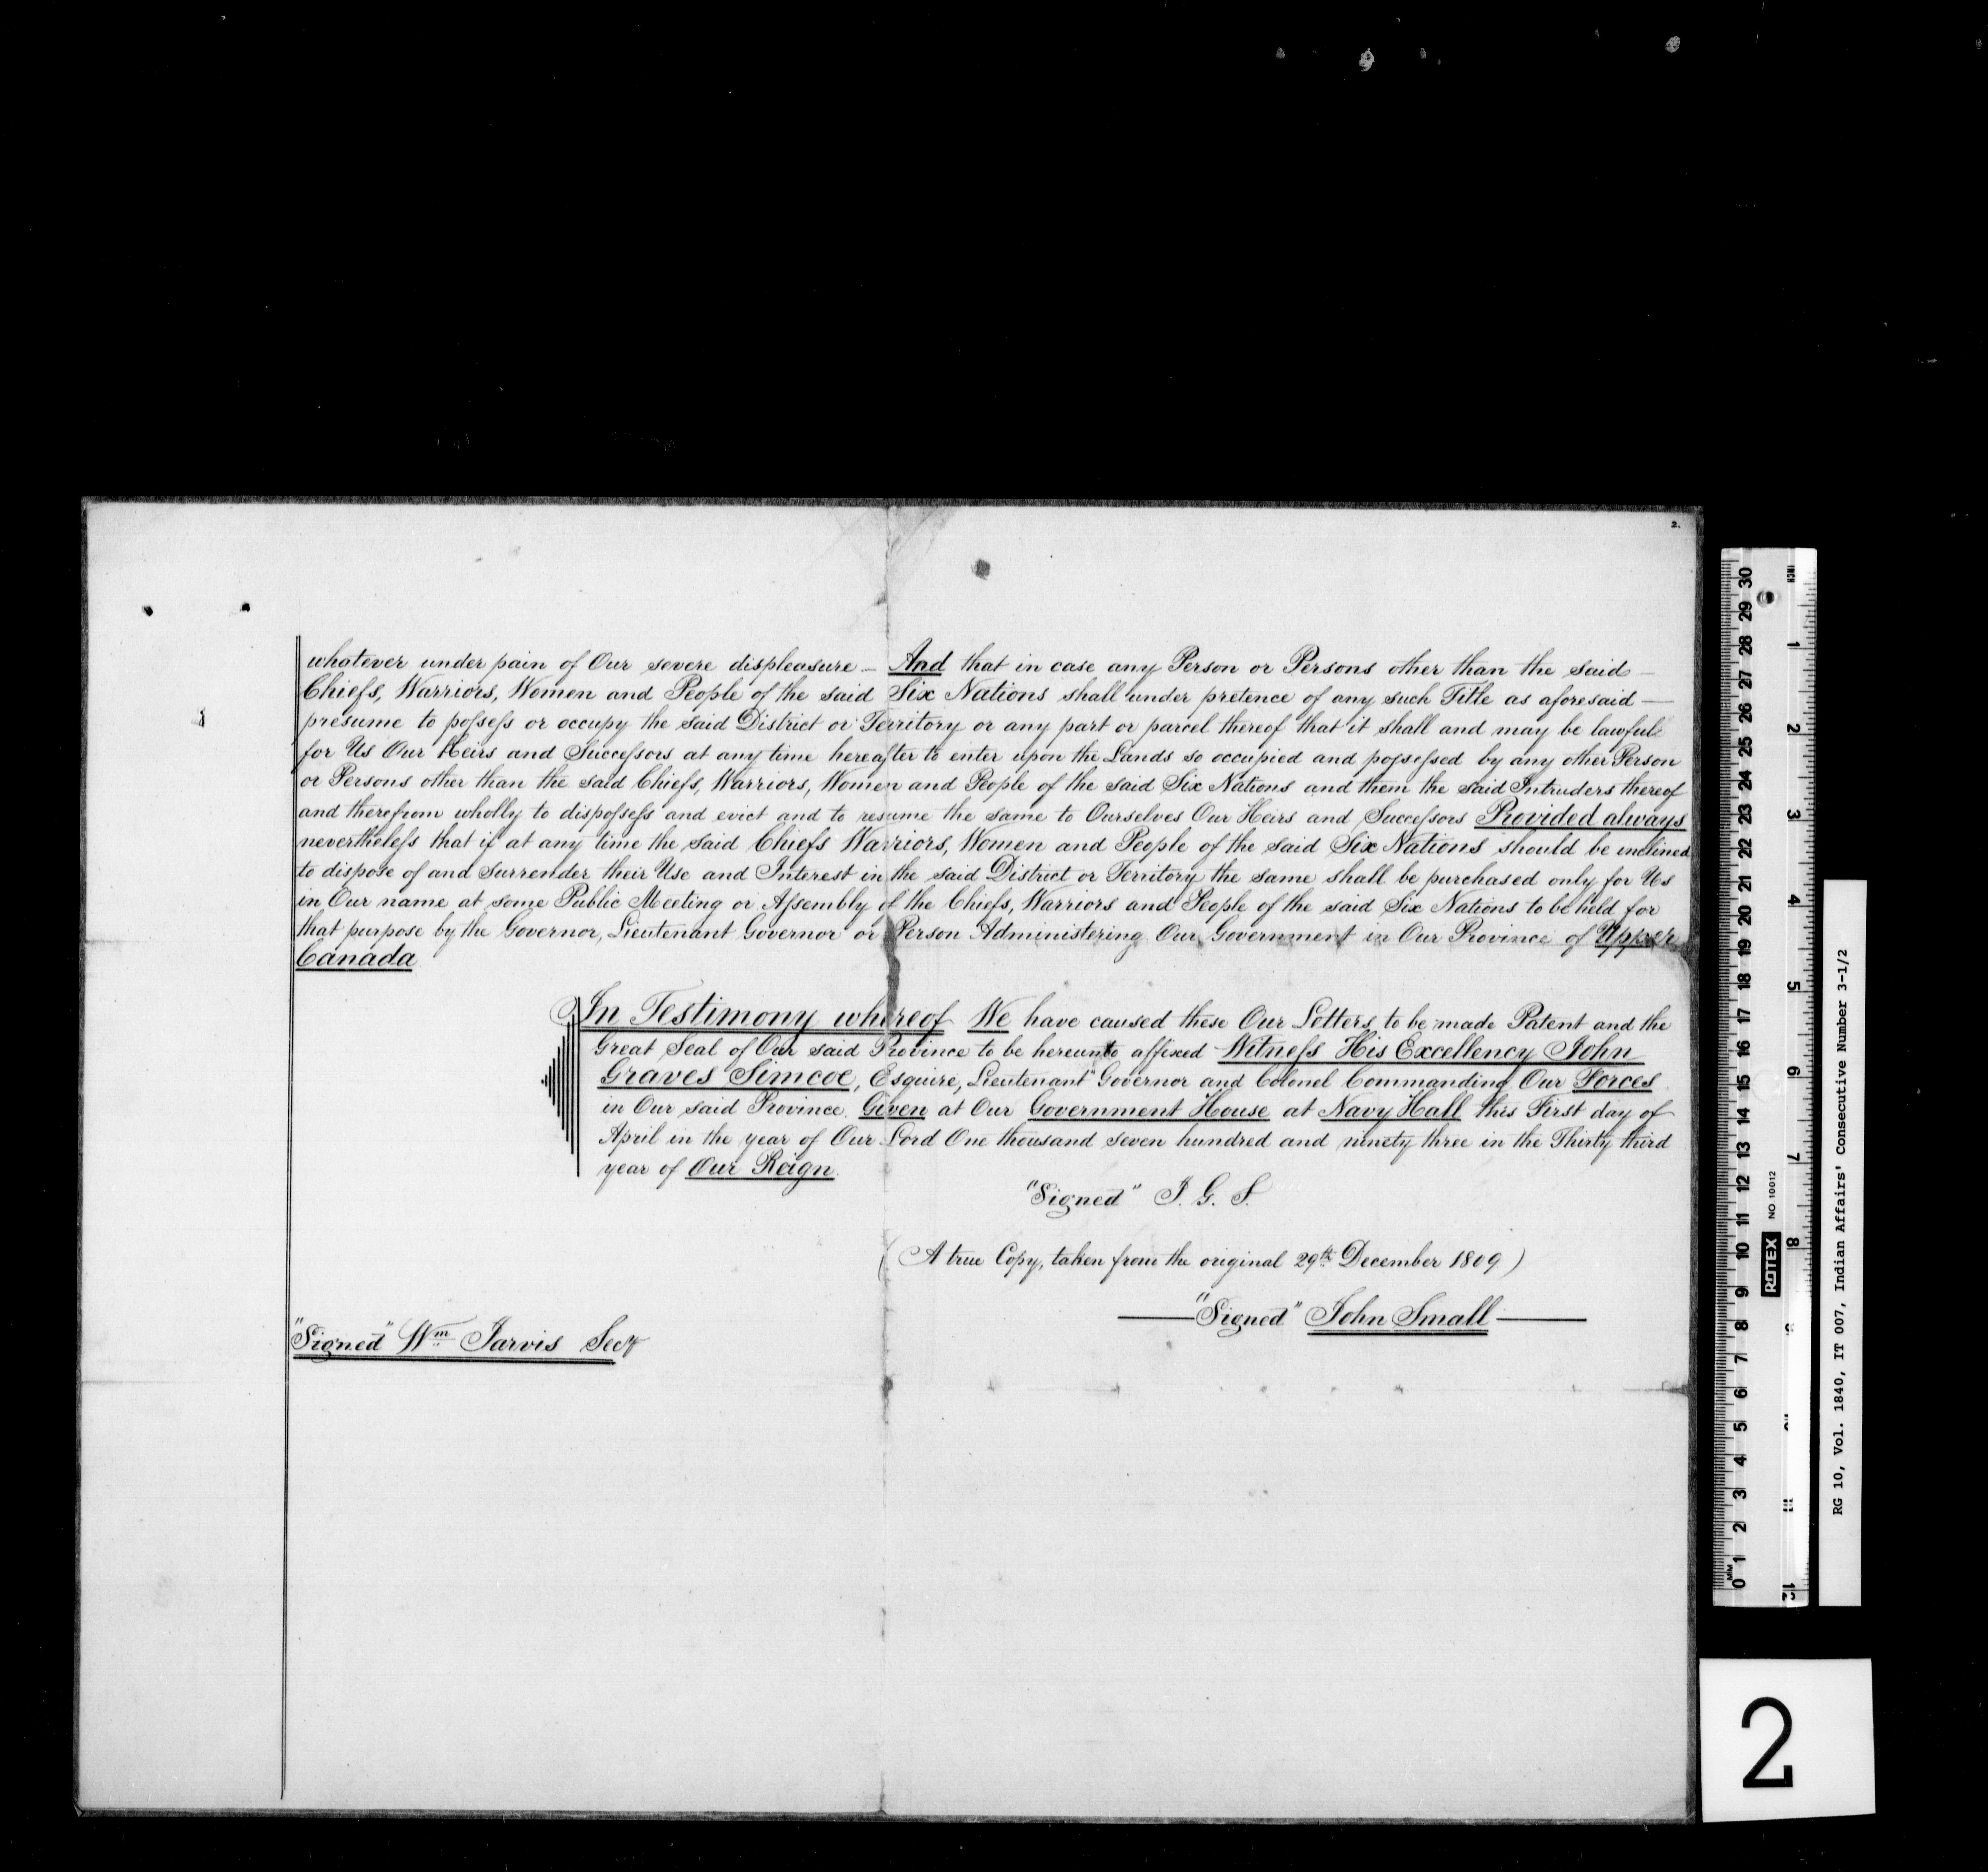 2.
whatever under pain of Our severe displeasure — And that in case any Person or Persons other than the said —
Chiefs, Warriors, Women and People of the said Six Nations shall under pretence of any such Title as aforesaid —
presume to poſseſs or occupy the said District or Territory or any part or parcel thereof that it shall and may be lawful
for Us Our Heirs and Succeſsors at any time hereafter to enter upon the Lands so occupied and poſseſsed by any other Person
or Persons other than the said Chiefs, Warriors, Women and People of the said Six Nations and them the said Intruders thereof
and therefrom wholly to dispoſseſs and evict and to resume the same to Ourselves Our Heirs and Succeſsors Provided always
nevertheleſs that if at any time the said Chiefs Warriors, Women and People of the said Six Nations should be inclined
to dispose of and Surrender their Use and Interest in the said District or Territory the same shall be purchased only for Us
in Our name at some Public Meeting or Aſsembly of the Chiefs, Warriors and People of the said Six Nations to be held for
that purpose by the Governor, Lieutenant Governor or Person Administering Our Government in Our Province of Upper
Canada
In Testimony whereof We have caused these Our Letters to be made Patent and the
Great Seal of Our said Province to be hereunto affixed Witneſs His Excellency John
Graves Simcoe, Esquire, Lieutenant Governor and Colonel Commanding Our Forces
in Our said Province. Given at Our Government House at Navy Hall this First day of
April in the year of Our Lord One thousand seven hundred and ninety three in the Thirty third
year of Our Reign.
"Signed" J. G. S.
(A true Copy, taken from the original 29th December 1809)
"Signed" John Small
"Signed" Wm Jarvis Secy
RG 10, Vol. 1840, IT 007, Indian Affairs' Consecutive Number 3-1/2
INCH
1
2
3
4
5
6
7
8
12
30
29
28
27
26
25
24
23
22
21
20
19
18
17
16
15
14
13
12
11
10
9
8
7
6
5
4
3
2
1
0
MM
ROTEX
NO. 10012
2